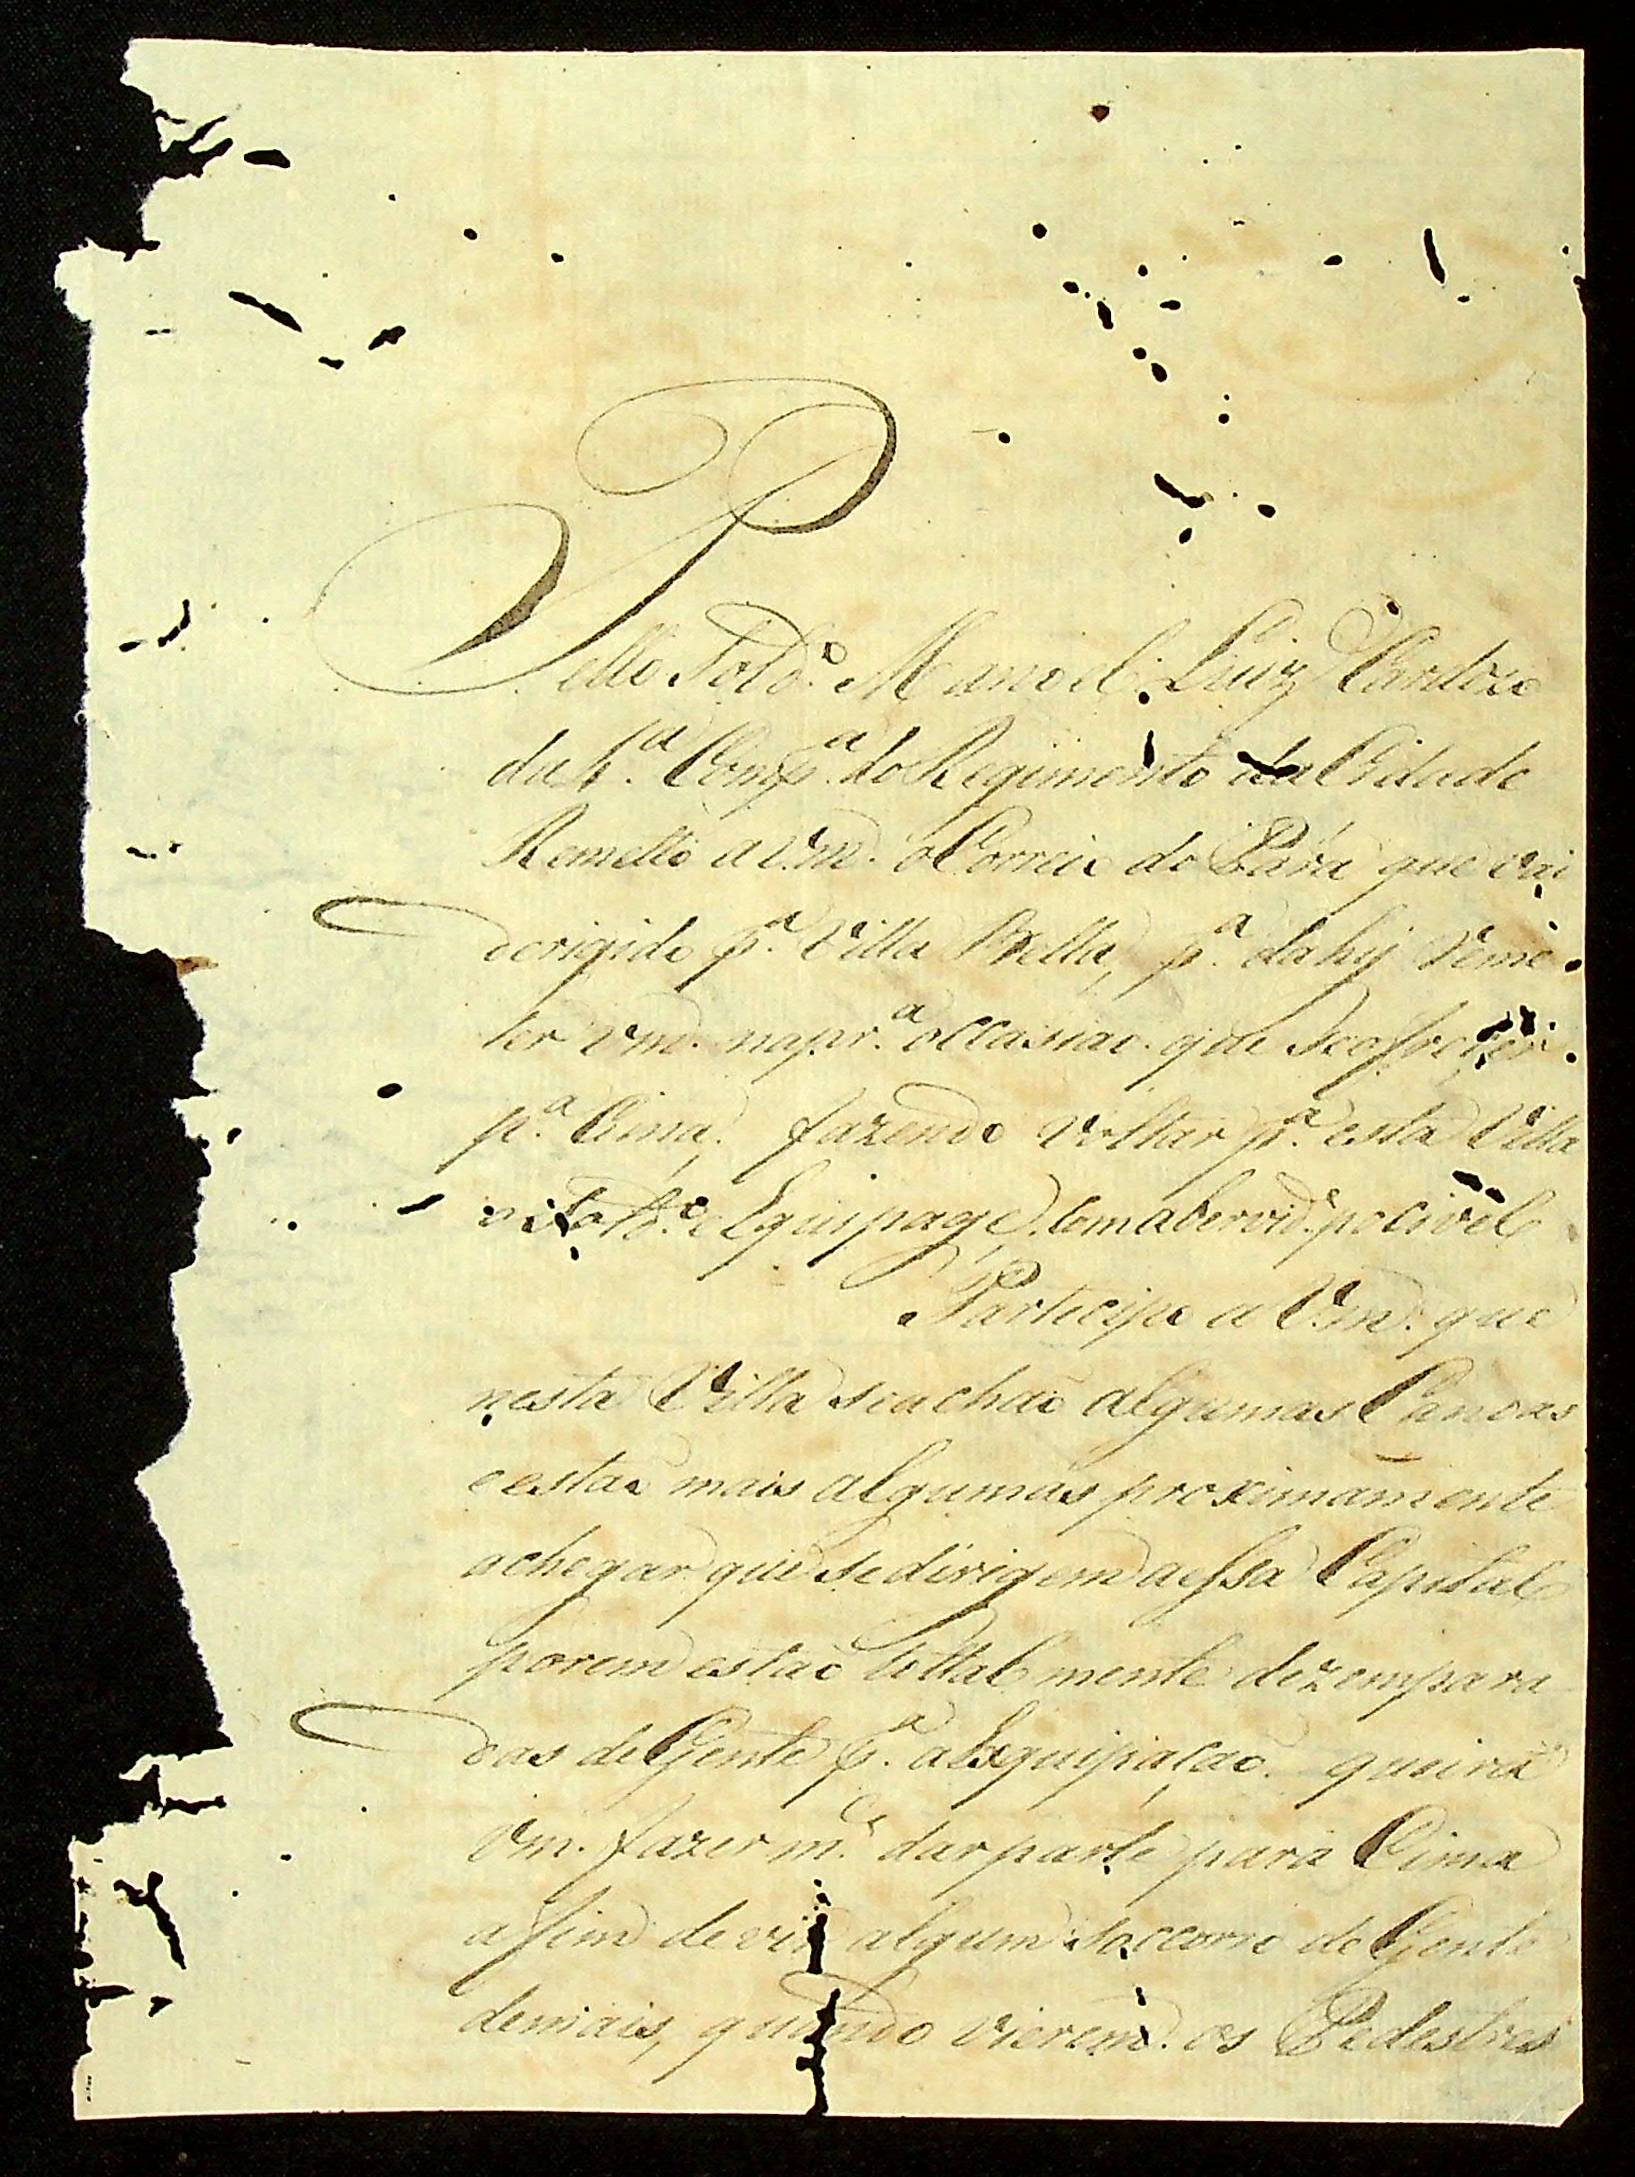 Pello Sold.º Manoel Luiz Cardozo
da 6.ª Comp.ª do Regimento da Cidade
Remetto a Vm. o Correio do Pará que vai
derigido p.ª Villa Bella, p.ª dahy reme-
ter Vm. na pr.ª occasiaõ que se ofrecer
p.ª Cima, fazendo voltar p.ª esta Villa
o Sold.º e Equipage com a bervid.e pocivel
Participo a Vm. que
nesta Villa se achaõ algumas Canoas
e estaõ mais algumas proximamente
a chegar que se dirigem a essa Capital
porem estaõ tottalmente dezempara
das de Gente p.ª a Esquipaçaõ. queira
Vm. fazer m.ce dar parte para Cima
afim de vir algum soccorro de Gente
demais, quando vierem os Pedestres